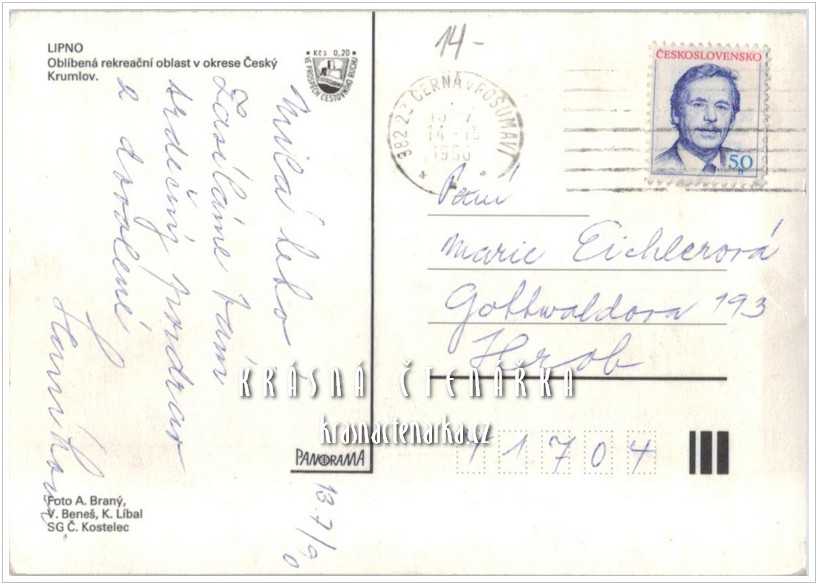 LIPNO
Oblíbená rekreační oblast v okrese Český
Krumlov.
Kčs 0,20
VE PROSPĚCH CESTOVNÍHO RUCHU
Milá teto
Zasíláme Vám
srdečný pozdrav
z dovolené
13.7/90
PANORAMA
Foto A. Braný,
V. Beneš, K. Líbal
SG Č. Kostelec
14-
382 23 ČERNÁ V POŠUMAVÍ
14-15
1990
ČESKOSLOVENSKO
50
h
Paní
Marie Eichlerová
Gottwaldova 193
Hrob
41704
KRÁSNÁ ČTENÁRKA
krasnactenarka.cz